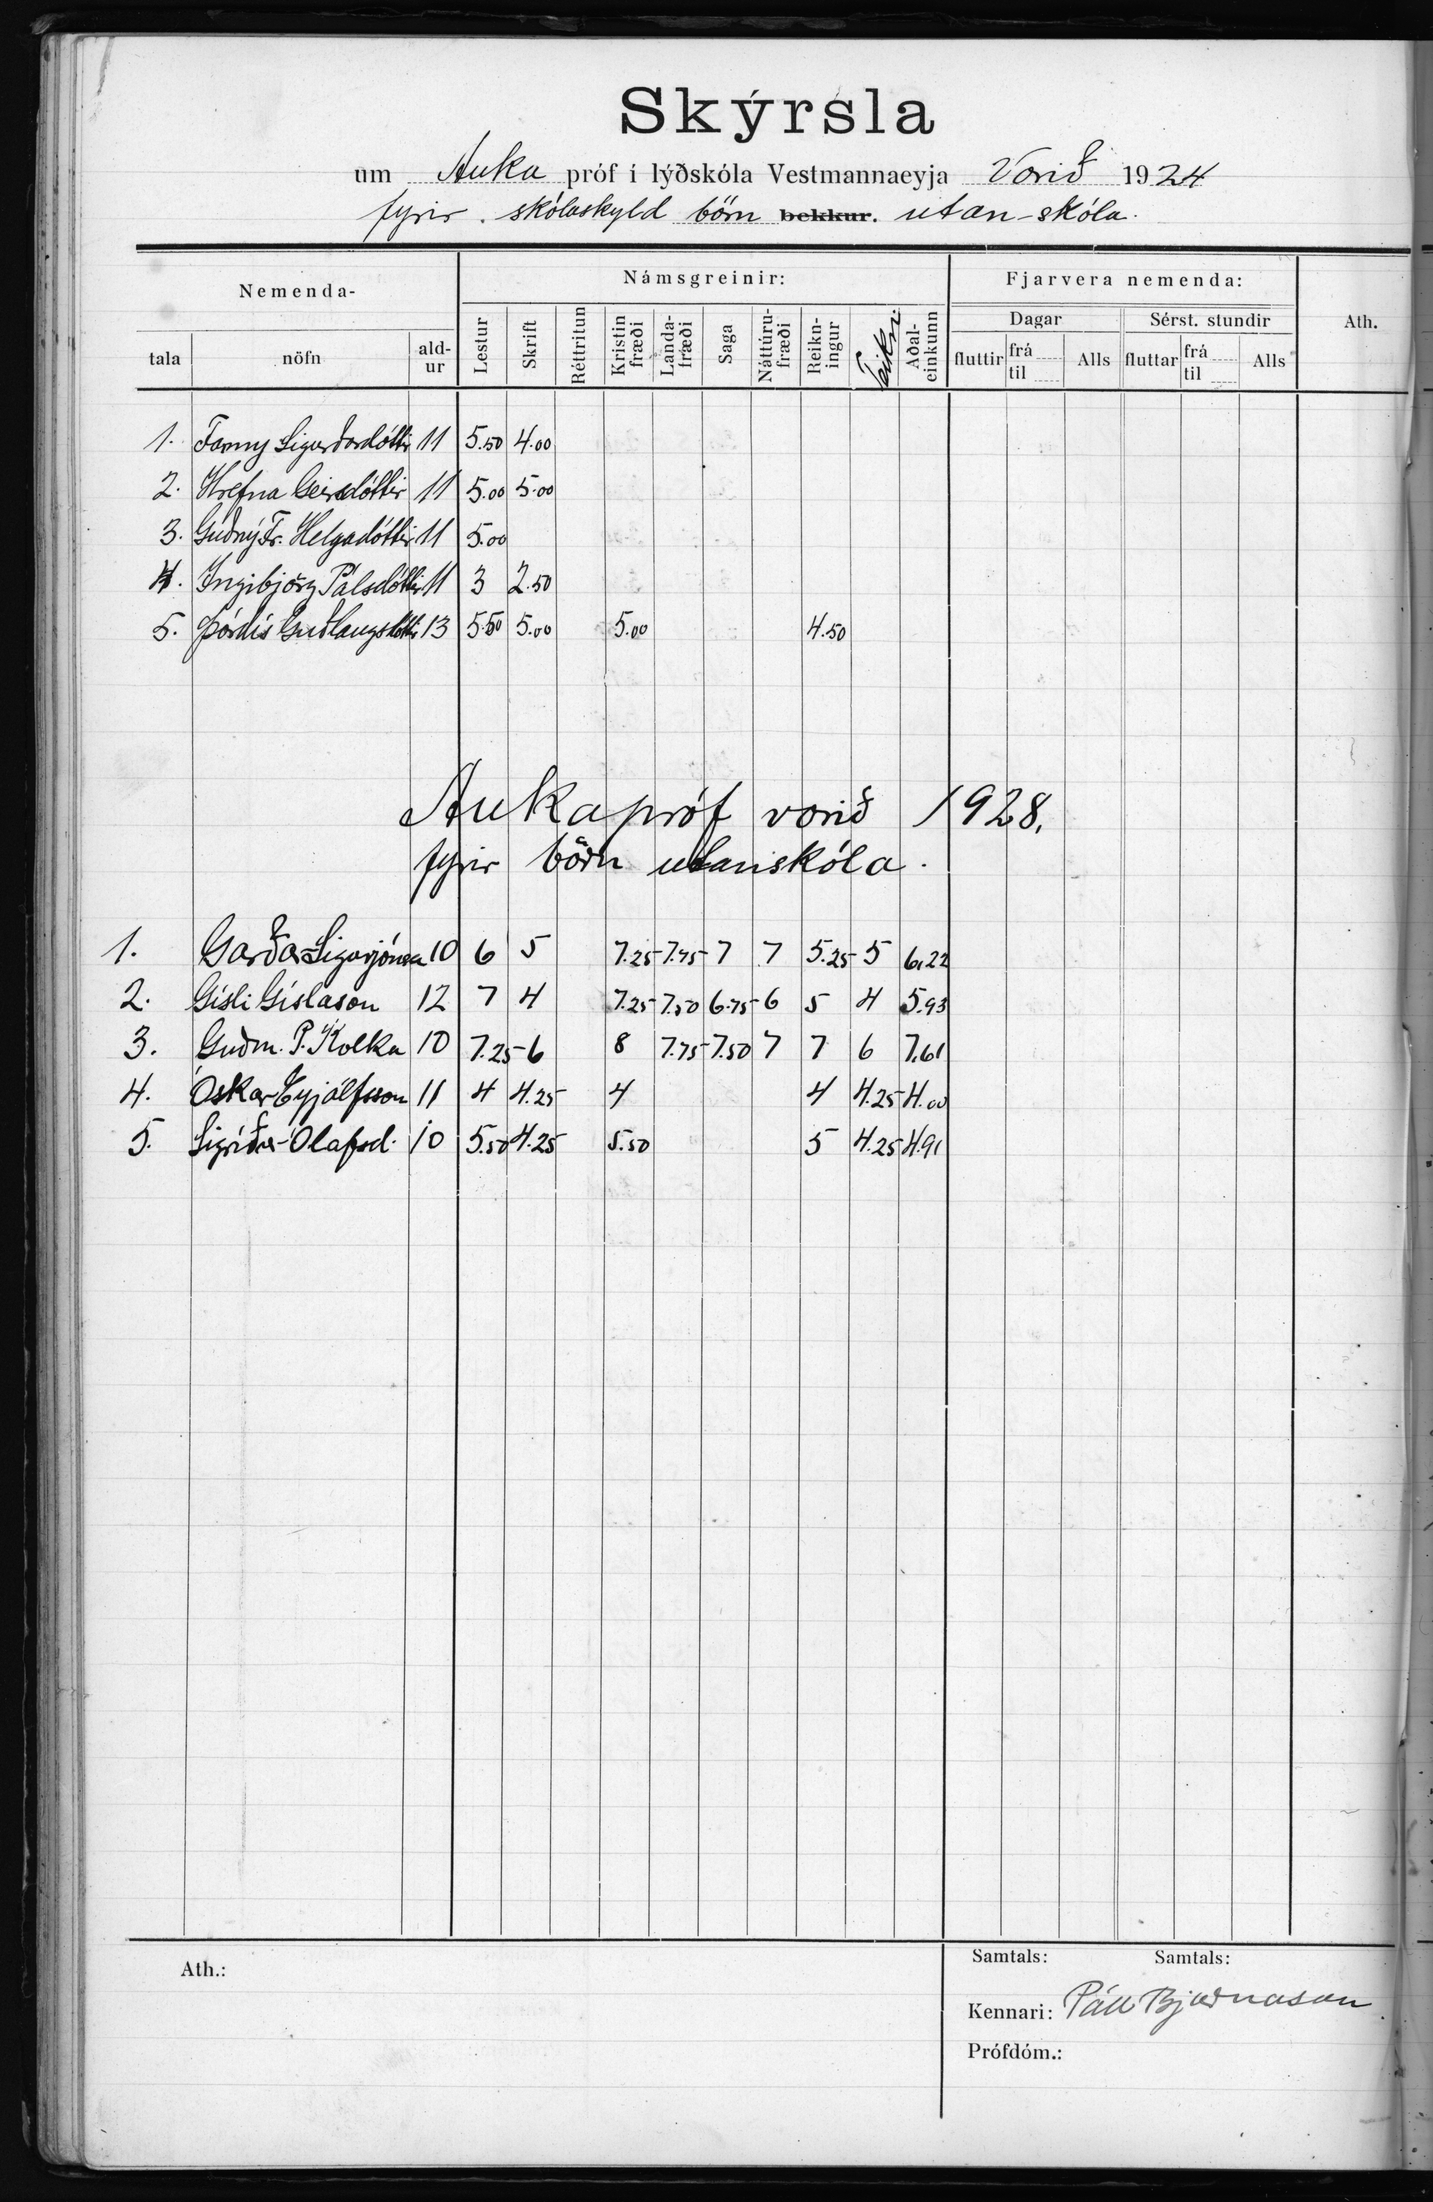 Skýrsla
um Auka próf í lýðskóla Vestmannaeyja Vorið 1924
fyrir skólaskyld börn bekkur. utan-skóla.
Nemenda- Námsgreinir: Fjarvera nemenda: Ath.
tala nöfn ald-ur Lestur Skrift Réttritun Kristin fræði Landa-fræði Saga Náttúru-fræði Reikn-ingur Teikn. Aðal-einkunn Dagar Sérst. stundir
fluttir frá til Alls fluttar frá til Alls
1. Fanny Sigurðardóttir 11 5.50 4.00
2. Hrefna Geirsdóttir 11 5.00 5.00
3. Guðný Fr. Helgadóttir 11 5.00
4. Ingibjörg Pálsdóttir 11 3 2.50
5. Þórdís Guðlaugsdóttir 13 5.50 5.00 5.00 4.50
Aukapróf vorið 1928.
fyrir börn utanskóla.
1. Garðar Sigurjónsson 10 6 5 7.25 7.75 7 7 5.25 5 6,22
2. Gísli Gíslason 12 7 4 7.25 7.50 6.75 6 5 4 5.93
3. Guðm. P. Kolka 10 7.25 6 8 7.75 7.50 7 7 6 7.61
4. Óskar Eyjólfsson 11 4 4.25 4 4 4.25 4.00
5. Sigríður Ólafsd. 10 5.50 4.25 5.50 5 4.25 4.91
Ath.:
Samtals: Samtals:
Kennari: Páll Bjarnason
Prófdóm.: